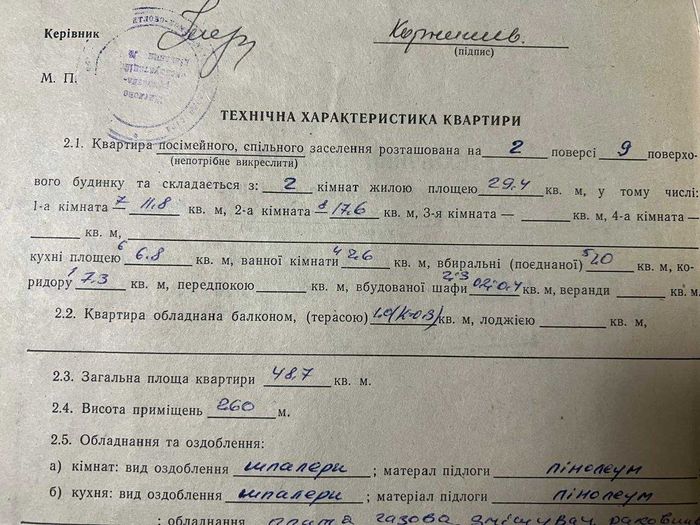 Керівник Коржишев.
(підпис)
М. П.
ТЕХНІЧНА ХАРАКТЕРИСТИКА КВАРТИРИ
2.1. Квартира посімейного, спільного заселення розташована на 2 поверсі 9 поверхо-
(непотрібне викреслити)
вого будинку та складається з: 2 кімнат жилою площею 29.4 кв. м, у тому числі:
1-а кімната 7 11.8 кв. м, 2-а кімната 8 17.6 кв. м, 3-я кімната — кв. м, 4-а кімната —
кв. м,
кухні площею 6 6.8 кв. м, ванної кімнати 4 2.6 кв. м, вбиральні (поєднаної) 5 1.0 кв. м, ко-
ридору 1 7.3 кв. м, передпокою кв. м, вбудованої шафи 2;3 0.2; 0.4 кв. м, веранди кв. м.
2.2. Квартира обладнана балконом, (терасою) 1.0 (к-0.3) кв. м, лоджією кв. м,
2.3. Загальна площа квартири 48.7 кв. м.
2.4. Висота приміщень 260 м.
2.5. Обладнання та оздоблення:
а) кімнат: вид оздоблення шпалери ; матерал підлоги лінолеум
б) кухня: вид оздоблення шпалери ; матеріал підлоги лінолеум
; обладнання плита газова змішувач раковин